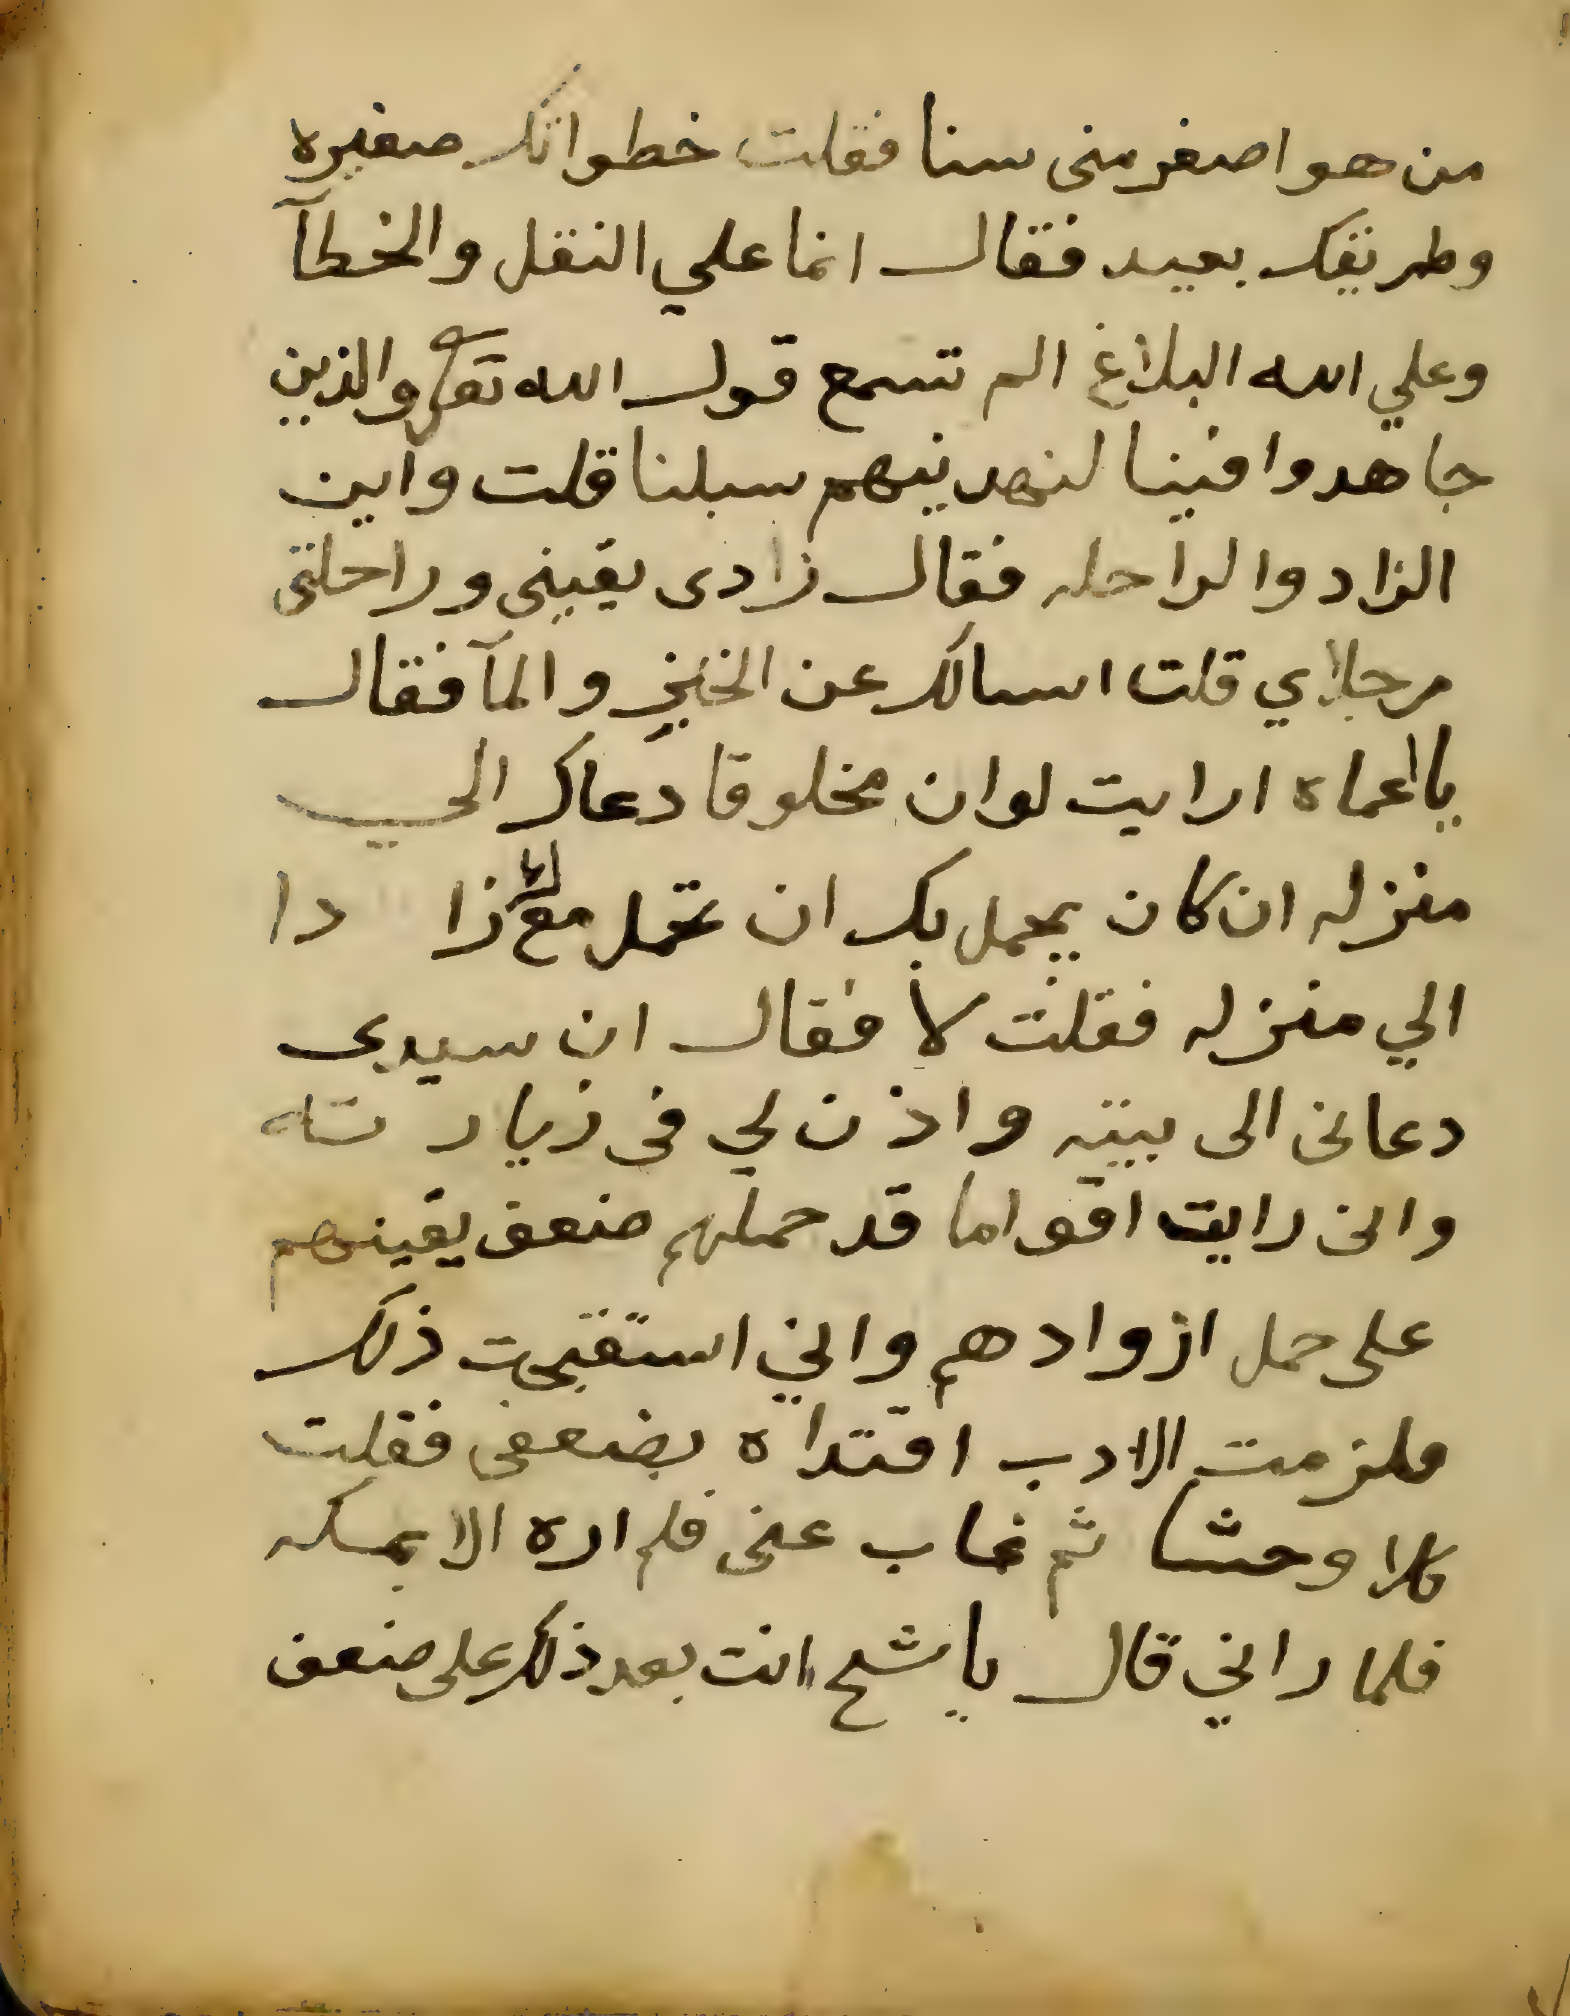 من هو اصغر مني سنا فقلت خطواتك صغيره
وطريقك بعيد فقال انما علي النقل والخطآ
وعلي الله البلاغ الم تسمع قول الله تعالى والذين
جاهدوا فينا لنهدينهم سبلنا قلت واين
الزاد والراحله فقال زادى يقينى وراحلتى
رجلاي قلت اسالك عن الخبز والمآ فقال
يا عماه ارايت لو ان مخلوقا دعاك الي
منزله ان كان يجمل بك ان تحمل معك زا دا
الي منزله فقلت لا فقال ان سيدى
دعانى الى بيته واذن لي فى زيارته
وانى رايت اقواما قد حملهم ضعف يقينهم
على حمل ازوادهم واني استقبحت ذلك
فلزمت الادب افتراه يضيعنى فقلت
كلا وحشا ثم غاب عنى فلم اره الا بمكه
فلما راني قال يا شيخ انت بعد ذلك على ضعف